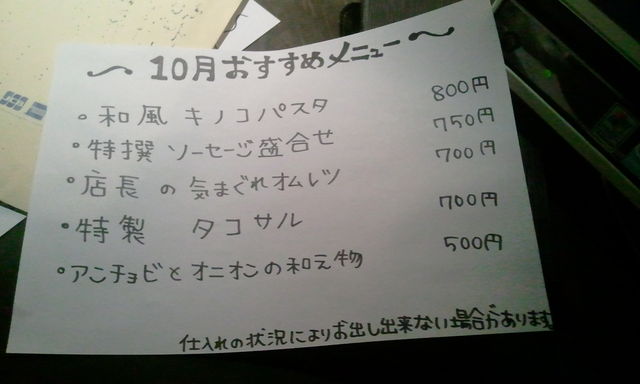 〜 10月おすすめメニュー 〜
・和風 キノコパスタ 800円
・特撰 ソーセージ盛合せ 750円
・店長 の 気まぐれオムレツ 700円
・特製 タコサル 700円
・アンチョビとオニオンの和え物 500円
仕入れの状況によりお出し出来ない場合があります